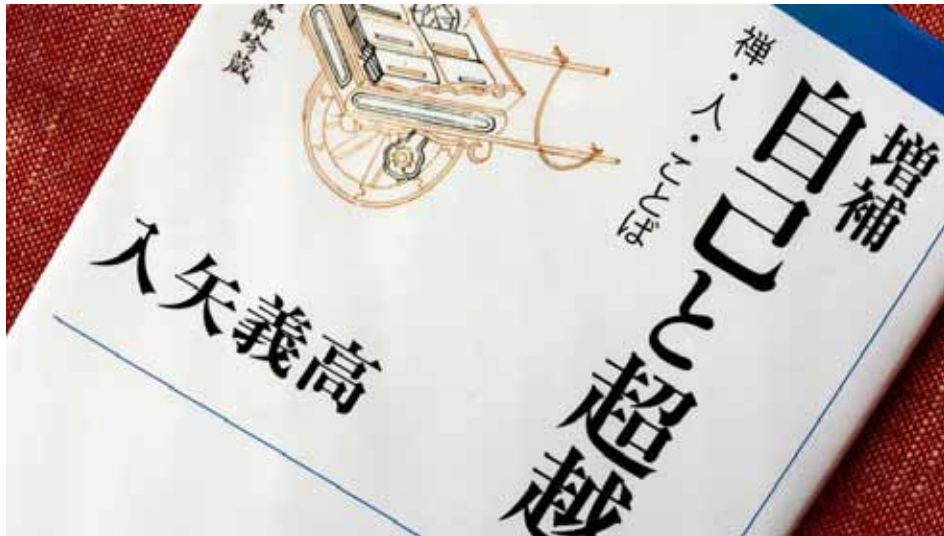 増補
自己と超越
禅・人・ことば
入矢義高
軒珍蔵